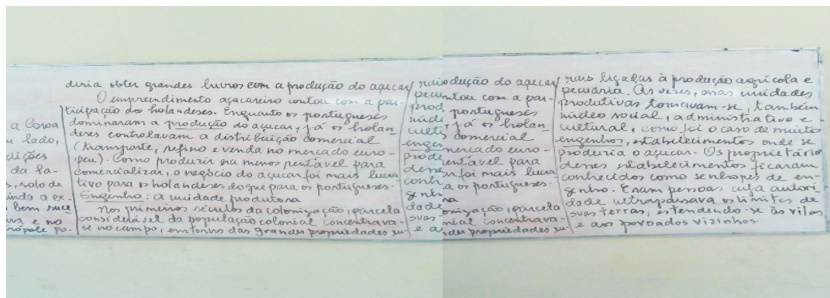 a Coroa
lado,
dições
da la-
solo de
inda a ex-
bem suce
e no
rópole po-
deria obter grandes lucros com a produção do açucar
O emprendimento açucareiro contou com a par-
ticipação do holandeses. Enquanto os portugueses
dominaram a produção do açucar, já os holan
deses controlavam a distribuição comercial
(transporte, refino e venda no mercado euro-
peu). Como produzir na menos rentável para
comercializar, o negócio do açucar foi mais lucra
tivo para os holandeses do que para os portugueses.
Engenho: a unidade produtora
Nos primeiros séculos da colonização, parcela
considerável da população colonial concentrava-
se no campo, em torno das grandes propriedades ru-
rais ligadas à produção agrícola e
pecuária. Às vezes, essas unidades
produtivas tornavam-se, também
núcleo social, administrativo e
cultural, como foi o caso de muitos
engenhos, estabelecimentos onde se
produzia o açucar. Os proprietários
desses estabelecimentos ficaram
conhecidos como senhores de en-
genho. Eram pessoas cuja autori
dade ultrapassava os limites de
suas terras, estendendo-se às vilas
e aos povoados vizinhos.